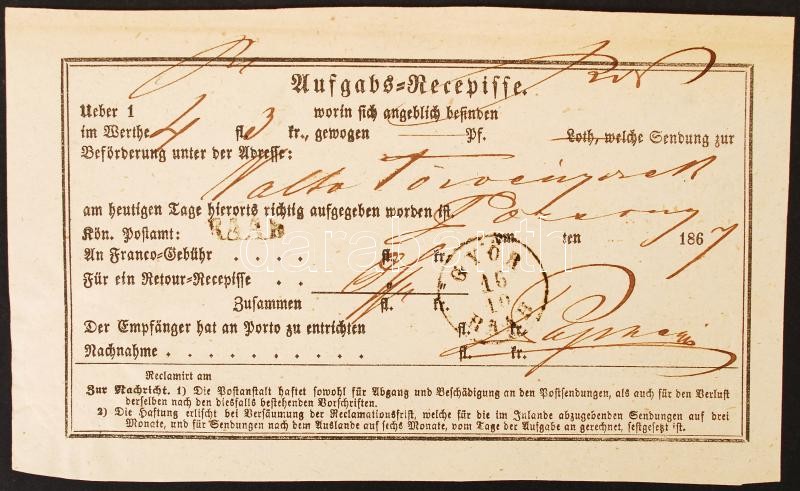 Aufgabs=Recepisse.
Ueber 1 worin sich angeblich befinden
im Werthe 4 fl. 3 kr., gewogen Pf. Loth, welche Sendung zur
Beförderung unter der Adresse:
Váltó Törvényszék
am heutigen Tage hierorts richtig aufgegeben worden ist. Pozsony
Kön. Postamt: RAAB vom ten 1867
An Franco-Gebühr . . . . fl. kr.
Für ein Retour-Recepisse . .
Zusammen fl. kr.
GYŐR
16
10
RAAB
Der Empfänger hat an Porto zu entrichten fl. kr.
Nachnahme . . . . . . . . . . fl. kr.
Reclamirt am
Zur Nachricht. 1) Die Postanstalt haftet sowohl für Abgang und Beschädigung an den Postsendungen, als auch für den Verlust
derselben nach den diesfalls bestehenden Vorschriften.
2) Die Haftung erlischt bei Versäumung der Reclamationsfrist, welche für die im Inlande abzugebenden Sendungen auf drei
Monate, und für Sendungen nach dem Auslande auf sechs Monate, vom Tage der Aufgabe an gerechnet, festgesetzt ist.
darabanth.com